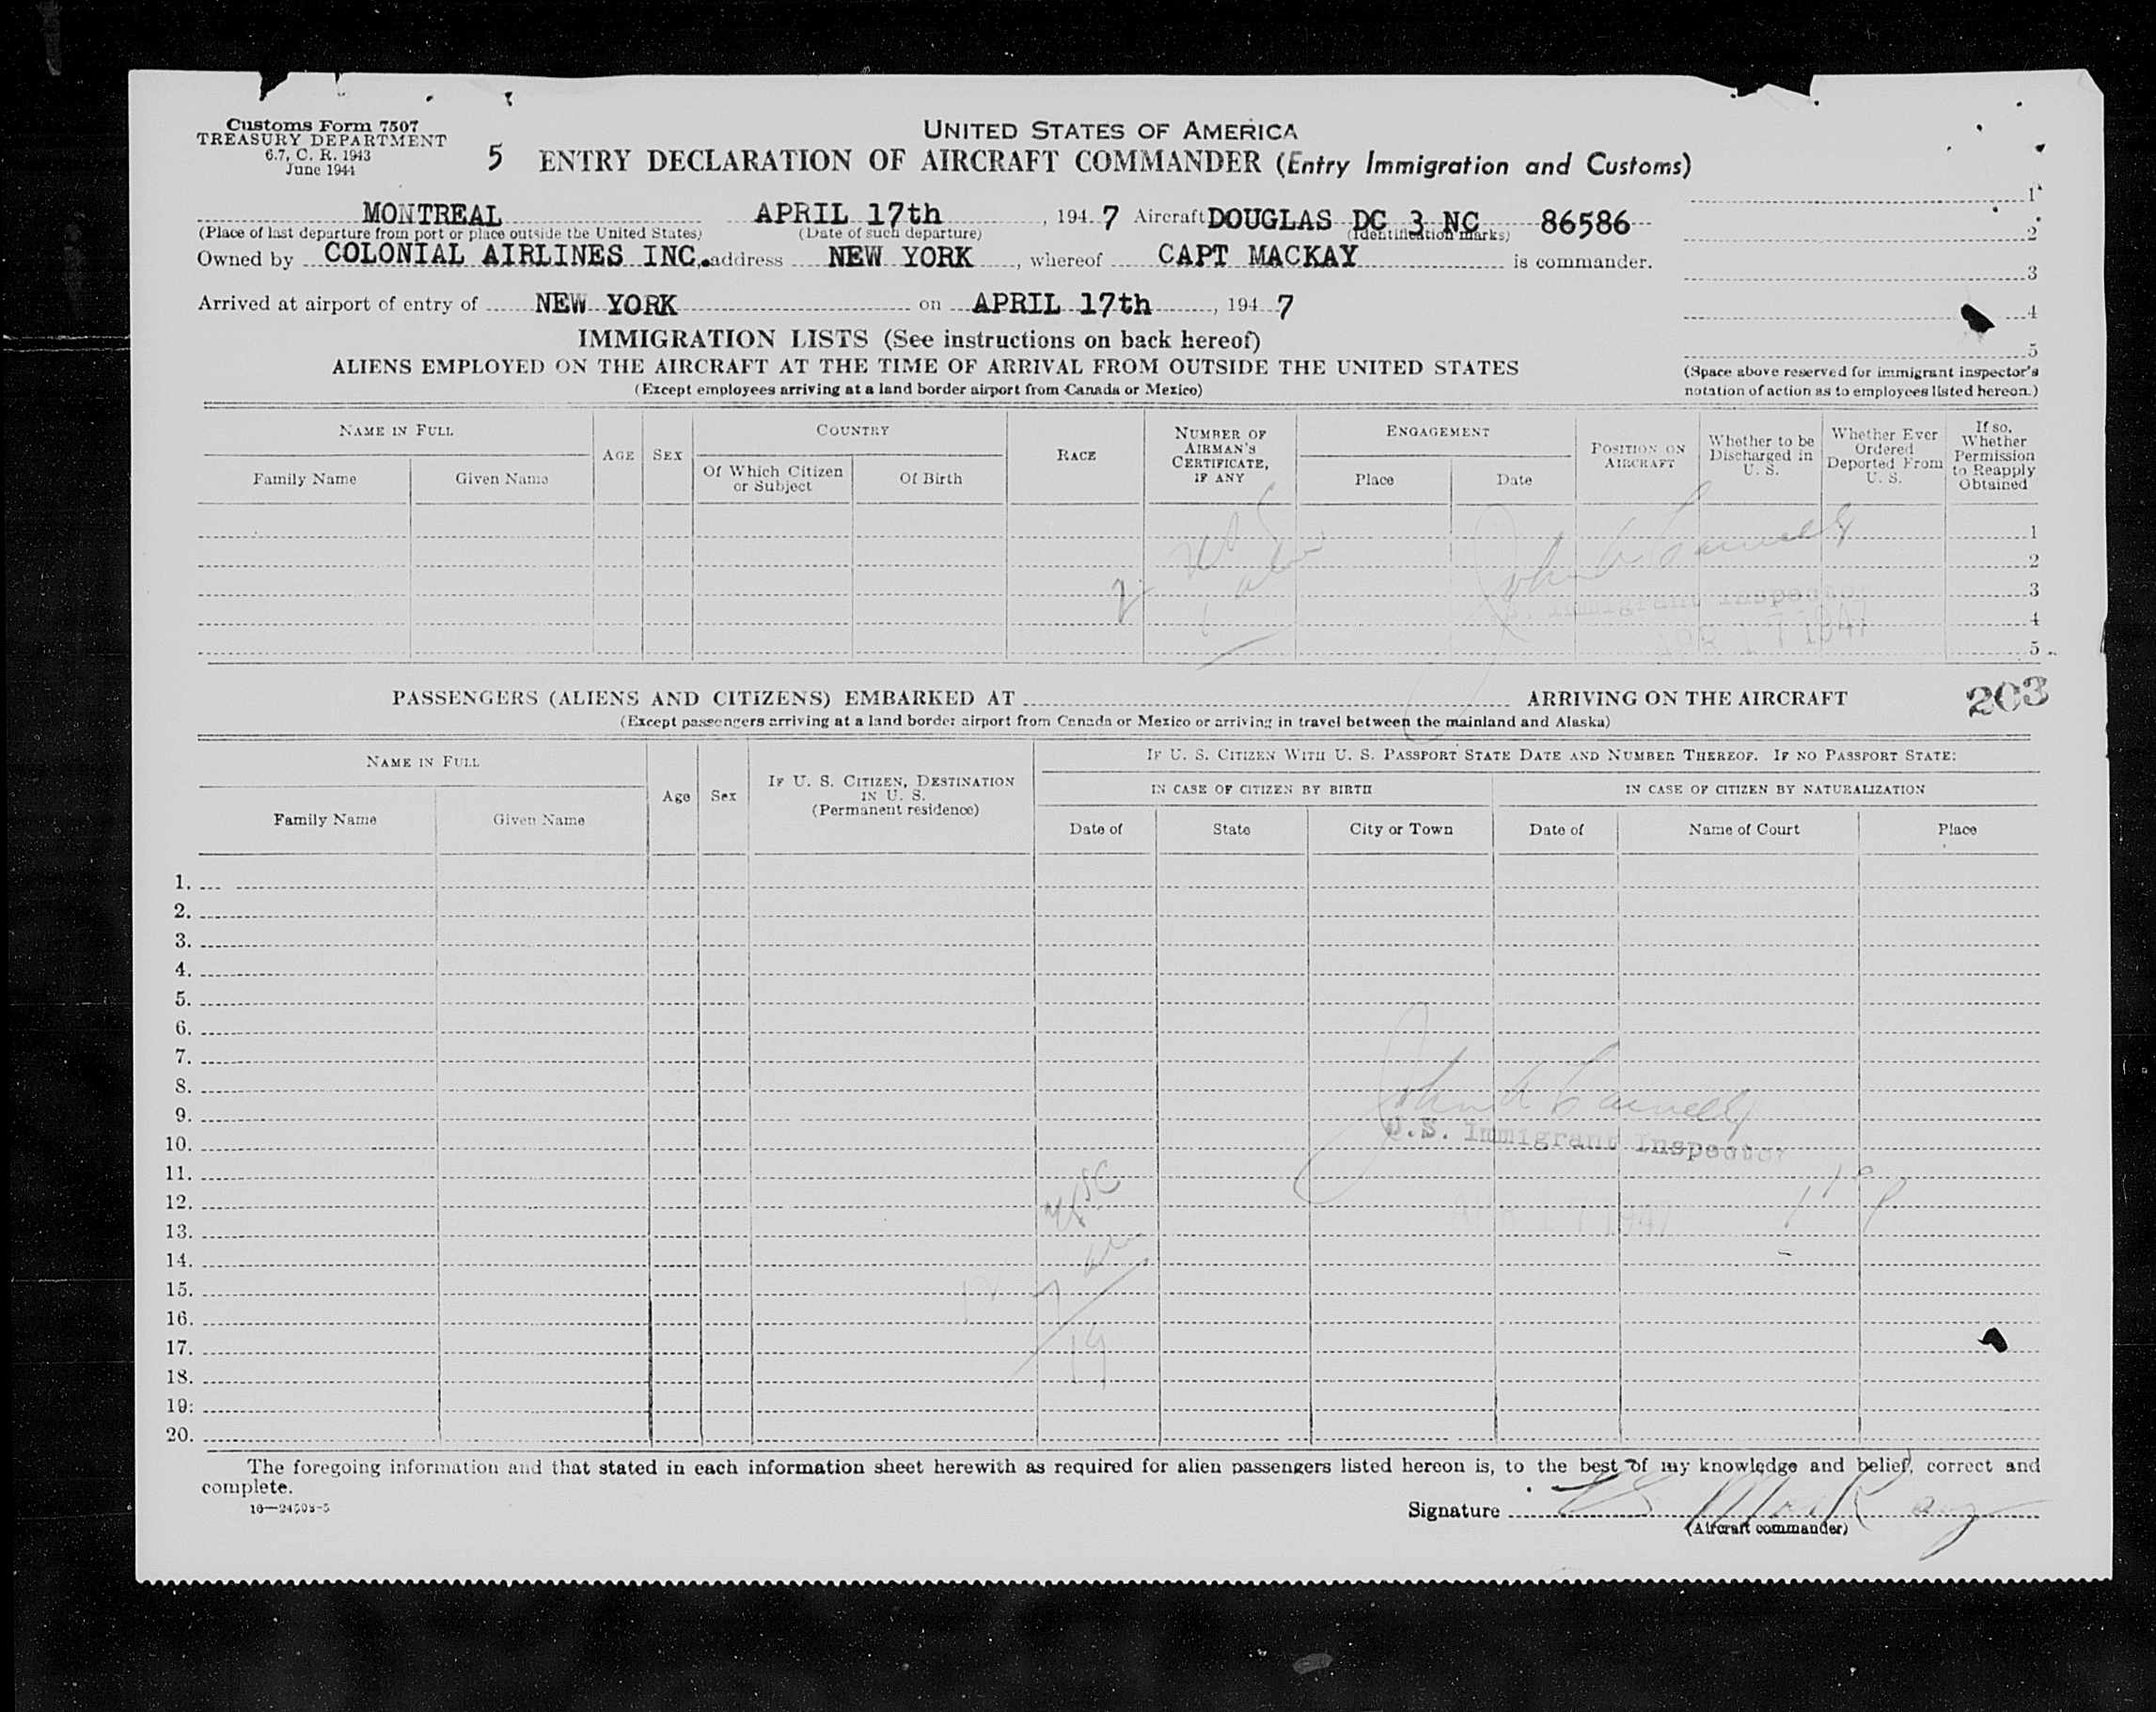 Customs Form 7507
TREASURY DEPARTMENT
6.7, C. R. 1943
June 1944
UNITED STATES OF AMERICA
5 ENTRY DECLARATION OF AIRCRAFT COMMANDER (Entry Immigration and Customs)
MONTREAL APRIL 17th, 1947 Aircraft DOUGLAS DC 3 NC 86586
(Place of last departure from port or place outside the United States) (Date of such departure) (Identification marks)
Owned by COLONIAL AIRLINES INC. address NEW YORK, whereof CAPT MACKAY is commander.
Arrived at airport of entry of NEW YORK on APRIL 17th, 1947
1
2
3
4
5
(Space above reserved for immigrant inspector's
notation of action as to employees listed hereon.)
IMMIGRATION LISTS (See instructions on back hereof)
ALIENS EMPLOYED ON THE AIRCRAFT AT THE TIME OF ARRIVAL FROM OUTSIDE THE UNITED STATES
(Except employees arriving at a land border airport from Canada or Mexico)
NAME IN FULL
Family Name Given Name
AGE SEX
COUNTRY
Of Which Citizen or Subject Of Birth
RACE
NUMBER OF AIRMAN'S CERTIFICATE, IF ANY
ENGAGEMENT
Place Date
POSITION ON AIRCRAFT
Whether to be Discharged in U. S.
Whether Ever Ordered Deported From U. S.
If so, Whether Permission to Reapply Obtained
1
2
3
4
5
U.S. Immigrant Inspector
APR 17 1947
PASSENGERS (ALIENS AND CITIZENS) EMBARKED AT ARRIVING ON THE AIRCRAFT 203
(Except passengers arriving at a land border airport from Canada or Mexico or arriving in travel between the mainland and Alaska)
NAME IN FULL
Family Name Given Name
Age Sex
IF U. S. CITIZEN, DESTINATION IN U. S.
(Permanent residence)
IF U. S. CITIZEN WITH U. S. PASSPORT STATE DATE AND NUMBER THEREOF. IF NO PASSPORT STATE:
IN CASE OF CITIZEN BY BIRTH IN CASE OF CITIZEN BY NATURALIZATION
Date of State City or Town Date of Name of Court Place
1.
2.
3.
4.
5.
6.
7.
8.
9.
10.
11.
12.
13.
14.
15.
16.
17.
18.
19.
20.
U.S. Immigrant Inspector
APR 17 1947
The foregoing information and that stated in each information sheet herewith as required for alien passengers listed hereon is, to the best of my knowledge and belief, correct and
complete.
16—24508-5
Signature
(Aircraft commander)